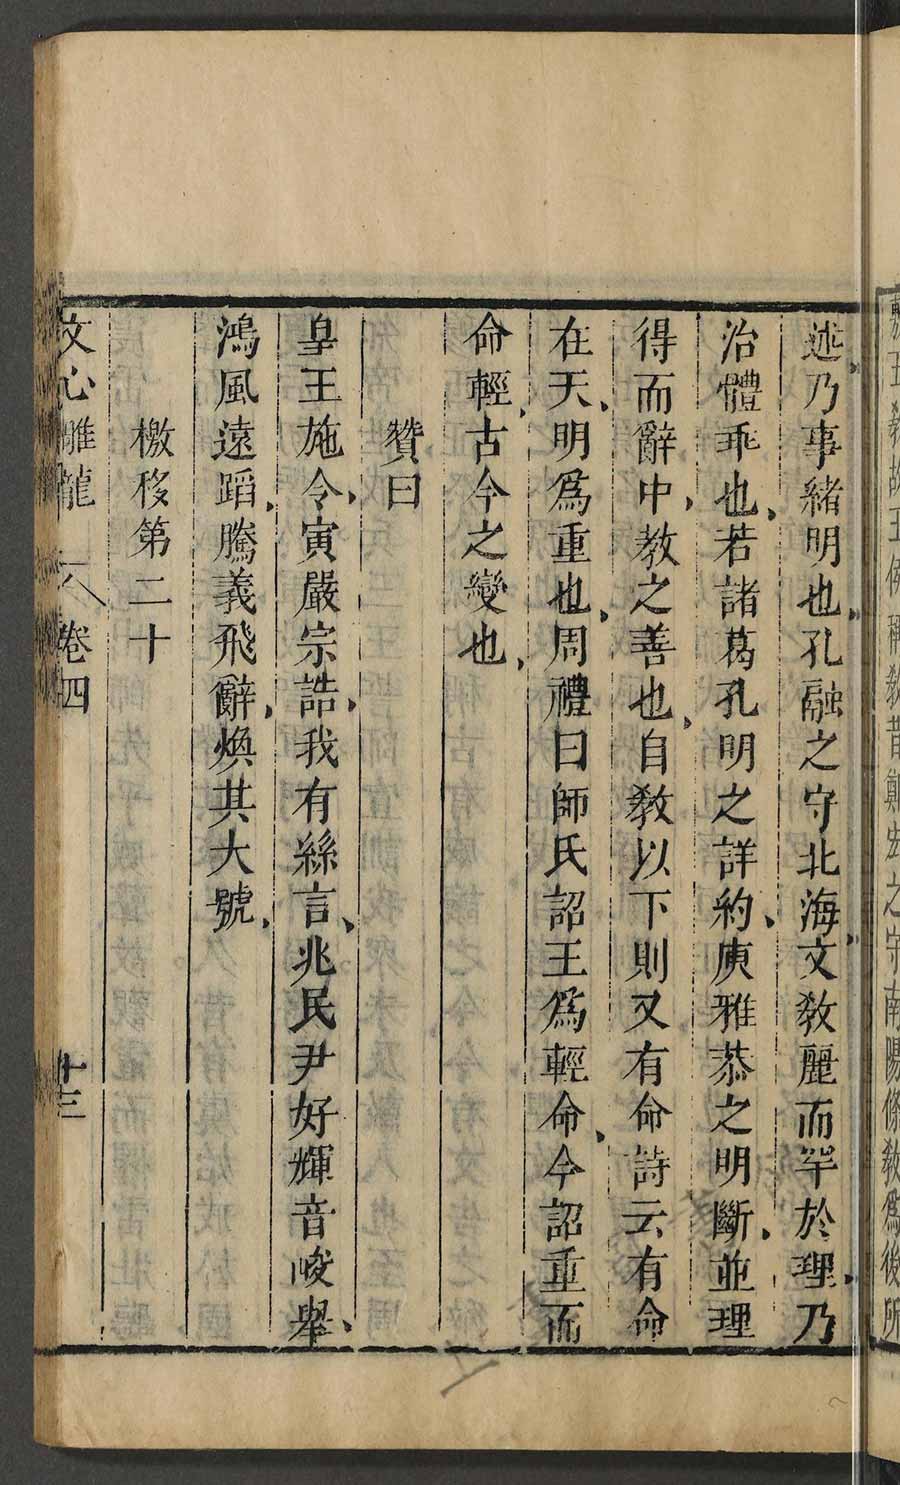 敷王教故王侯稱教昔鄭弘之守南陽條教爲後所
述乃事緒明也孔融之守北海文教麗而罕於理乃
治體乖也若諸葛孔明之詳約庾雅恭之明斷並理
得而辭中教之善也自教以下則又有命詩云有命
在天明爲重也周禮曰師氏詔王爲輕命今詔重而
命輕古今之變也
贊曰
皇王施令寅嚴宗誥我有絲言兆民尹好輝音峻舉
鴻風遠蹈騰義飛辭煥其大號
檄移第二十
文心雕龍 卷四 十三